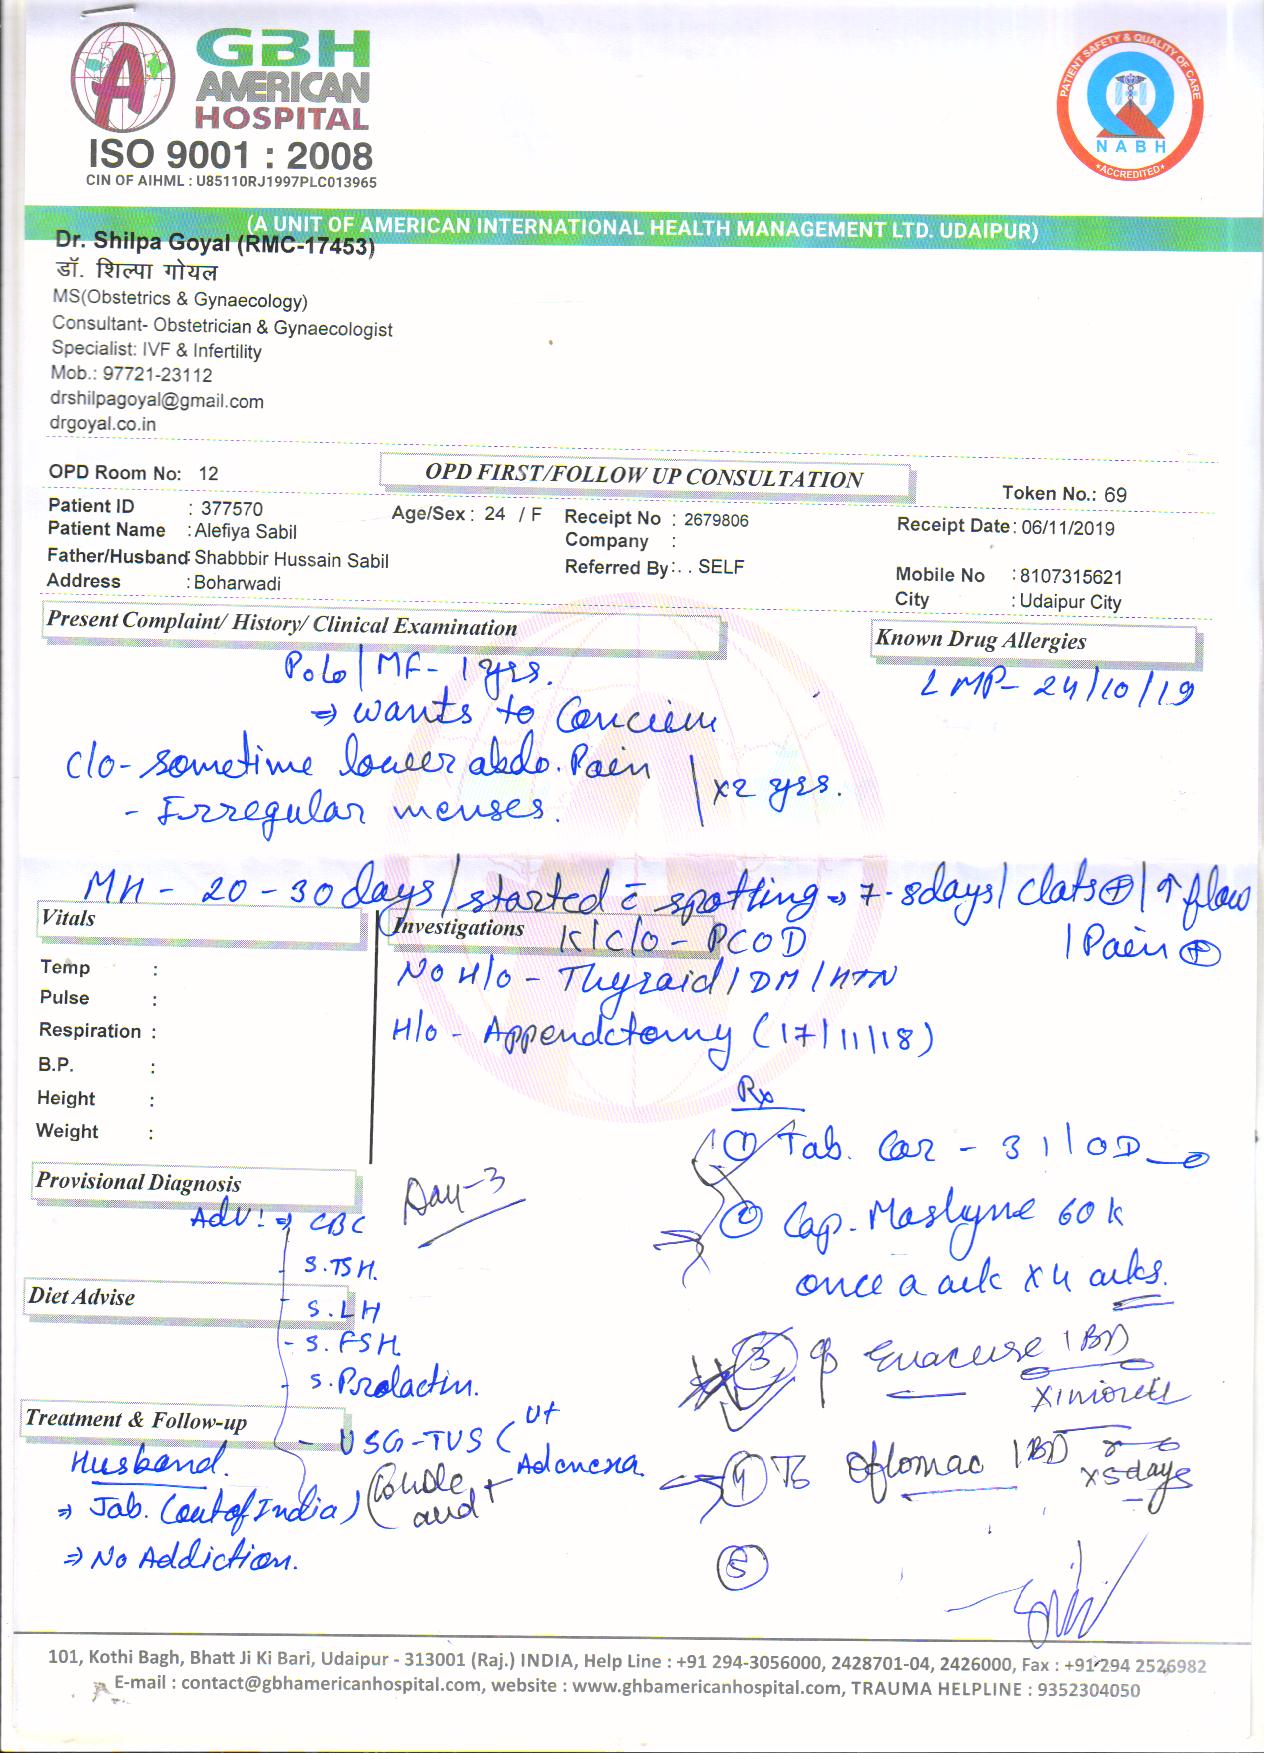 GBH
AMERICAN
HOSPITAL
ISO 9001 : 2008
CIN OF AIHML : U85110RJ1997PLC013965
PATIENT SAFETY & QUALITY OF CARE
NABH
ACCREDITED
(A UNIT OF AMERICAN INTERNATIONAL HEALTH MANAGEMENT LTD. UDAIPUR)
Dr. Shilpa Goyal (RMC-17453)
डॉ. शिल्पा गोयल
MS(Obstetrics & Gynaecology)
Consultant- Obstetrician & Gynaecologist
Specialist: IVF & Infertility
Mob.: 97721-23112
drshilpagoyal@gmail.com
drgoyal.co.in
OPD Room No: 12
OPD FIRST/FOLLOW UP CONSULTATION
Token No.: 69
Patient ID : 377570
Age/Sex : 24 / F
Receipt No : 2679806
Receipt Date : 06/11/2019
Patient Name : Alefiya Sabil
Company :
Father/Husband: Shabbbir Hussain Sabil
Referred By: . . SELF
Mobile No : 8107315621
Address : Boharwadi
City : Udaipur City
Present Complaint/ History/ Clinical Examination
Known Drug Allergies
P0L0 | MF- 1 yrs.
LMP- 24/10/19
⇒ wants to
c/o - sometime lower abdo. Pain
- Irregular menses. | x2 yrs.
MH - 20 - 30 days / started c̄ spotting → 7-8days / clots ⊕ / ↑ flow
| Pain ⊕
Vitals
Investigations
K/c/o - PCOD
Temp :
No H/o - Thyroid / DM / HTN
Pulse :
Respiration :
H/o - Appendctomy (17/11/18)
B.P. :
Height :
Weight :
Rx
① Tab. Car - 3 1 OD
Provisional Diagnosis
Day-3
Adv: ⇒ CBC
② Cap. 60 k
S. TSH.
once a wk x 4 wks.
Diet Advise
S. LH
- S. FSH.
③
1 BD
S. Prolactin.
Treatment & Follow-up
- USG-TVS ( Ut
+ Adenexa
④ Oflomac 1 BD
x 5 days
Husband.
⇒ Job. (out of India)
⇒ No Addiction.
⑤
101, Kothi Bagh, Bhatt Ji Ki Bari, Udaipur - 313001 (Raj.) INDIA, Help Line : +91 294-3056000, 2428701-04, 2426000, Fax : +91 294 2526982
E-mail : contact@gbhamericanhospital.com, website : www.ghbamericanhospital.com, TRAUMA HELPLINE : 9352304050